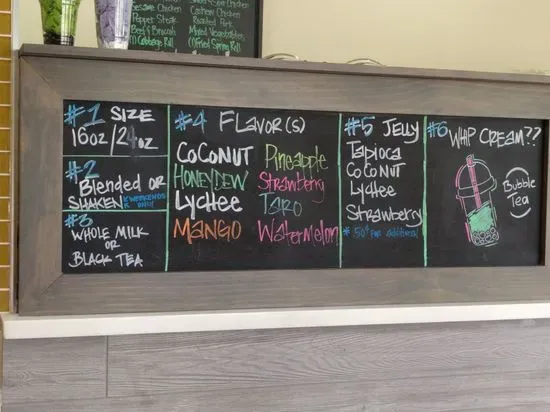 Sesame Chicken
Cashew Chicken
Pepper Steak
Roasted Pork
Beef & Broccoli
Mixed Vegetables
(1) Cabbage Roll
(1) Fried Spring Roll
#1 SIZE
16oz/24oz
#2
Blended OR
SHAKEN
WEEKENDS
ONLY
#3
WHOLE MILK
OR
BLACK TEA
#4 FLAVOR(S)
COCONUT
HONEYDEW
LycHee
MANGO
Pineapple
Strawberry
TARO
Watermelon
#5 JELLY
Tapioca
COCONUT
LycHee
Strawberry
* 50¢ For additional
#6 WHIP CREAM??
Bubble
Tea